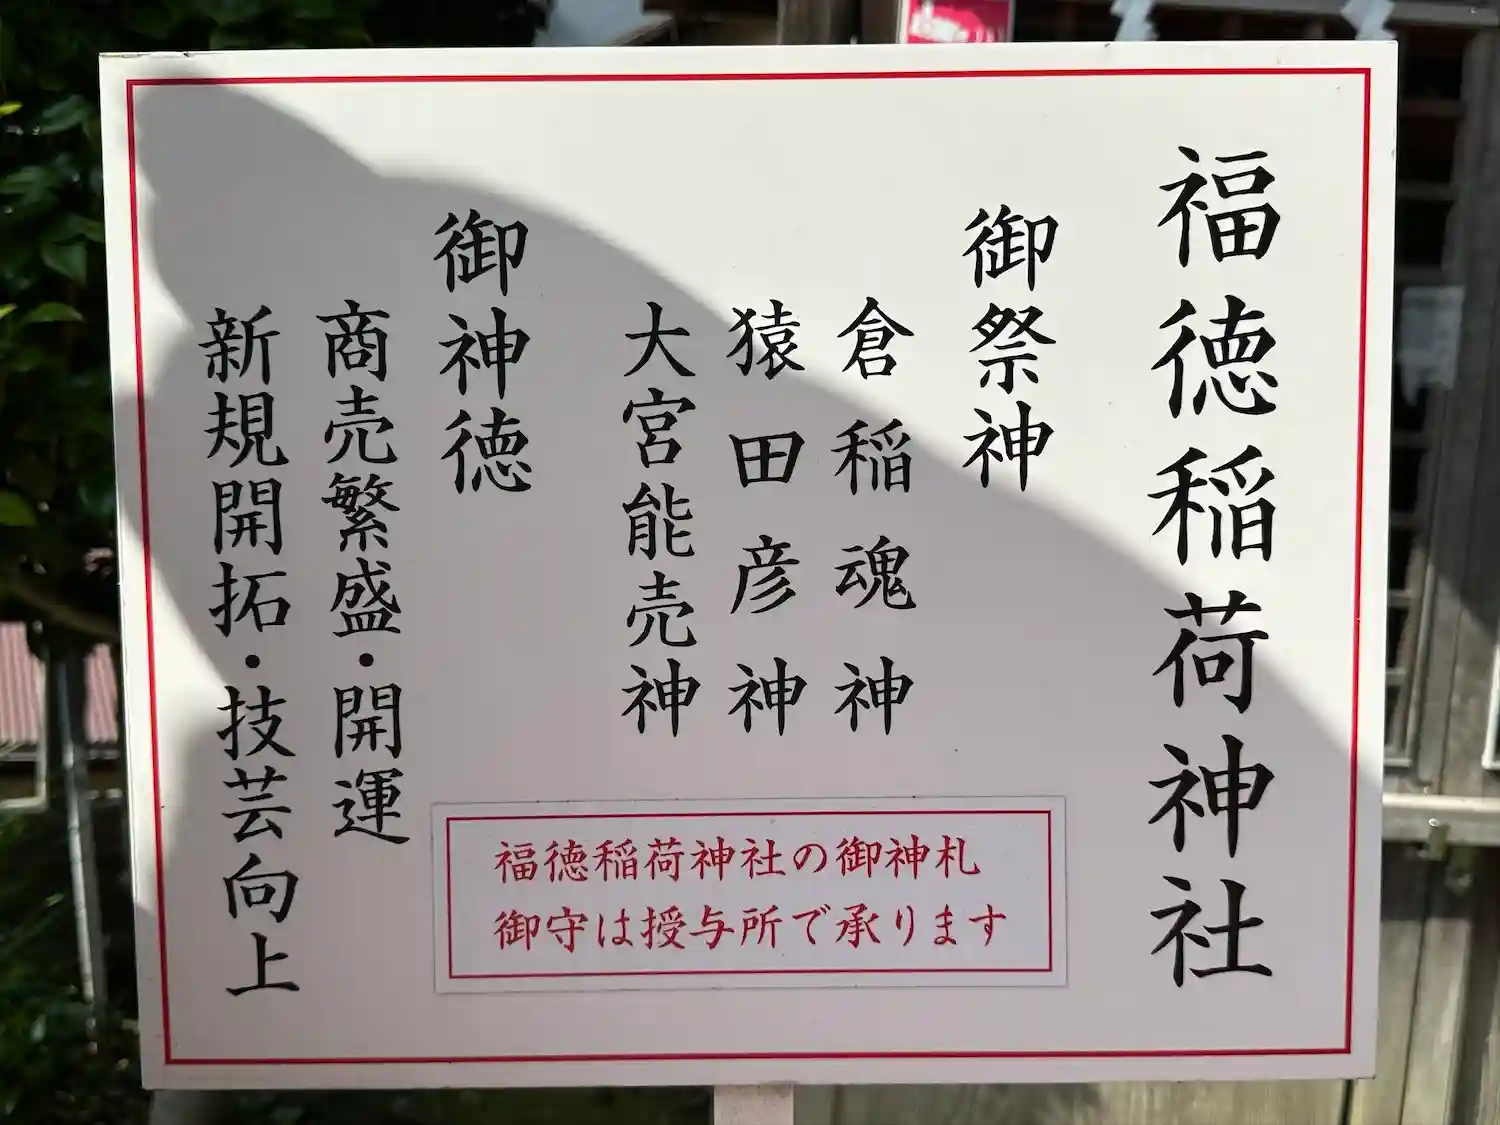 福徳稲荷神社
御祭神
倉稲魂神
猿田彦神
大宮能売神
御神徳
商売繁盛・開運
新規開拓・技芸向上
福徳稲荷神社の御神札
御守は授与所で承ります